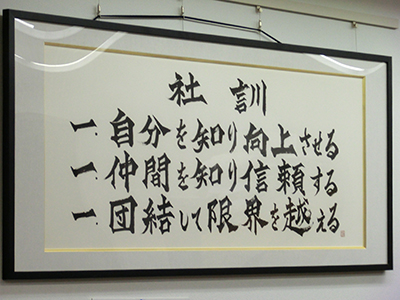 社訓
一、自分を知り向上させる
一、仲間を知り信頼する
一、団結して限界を越える